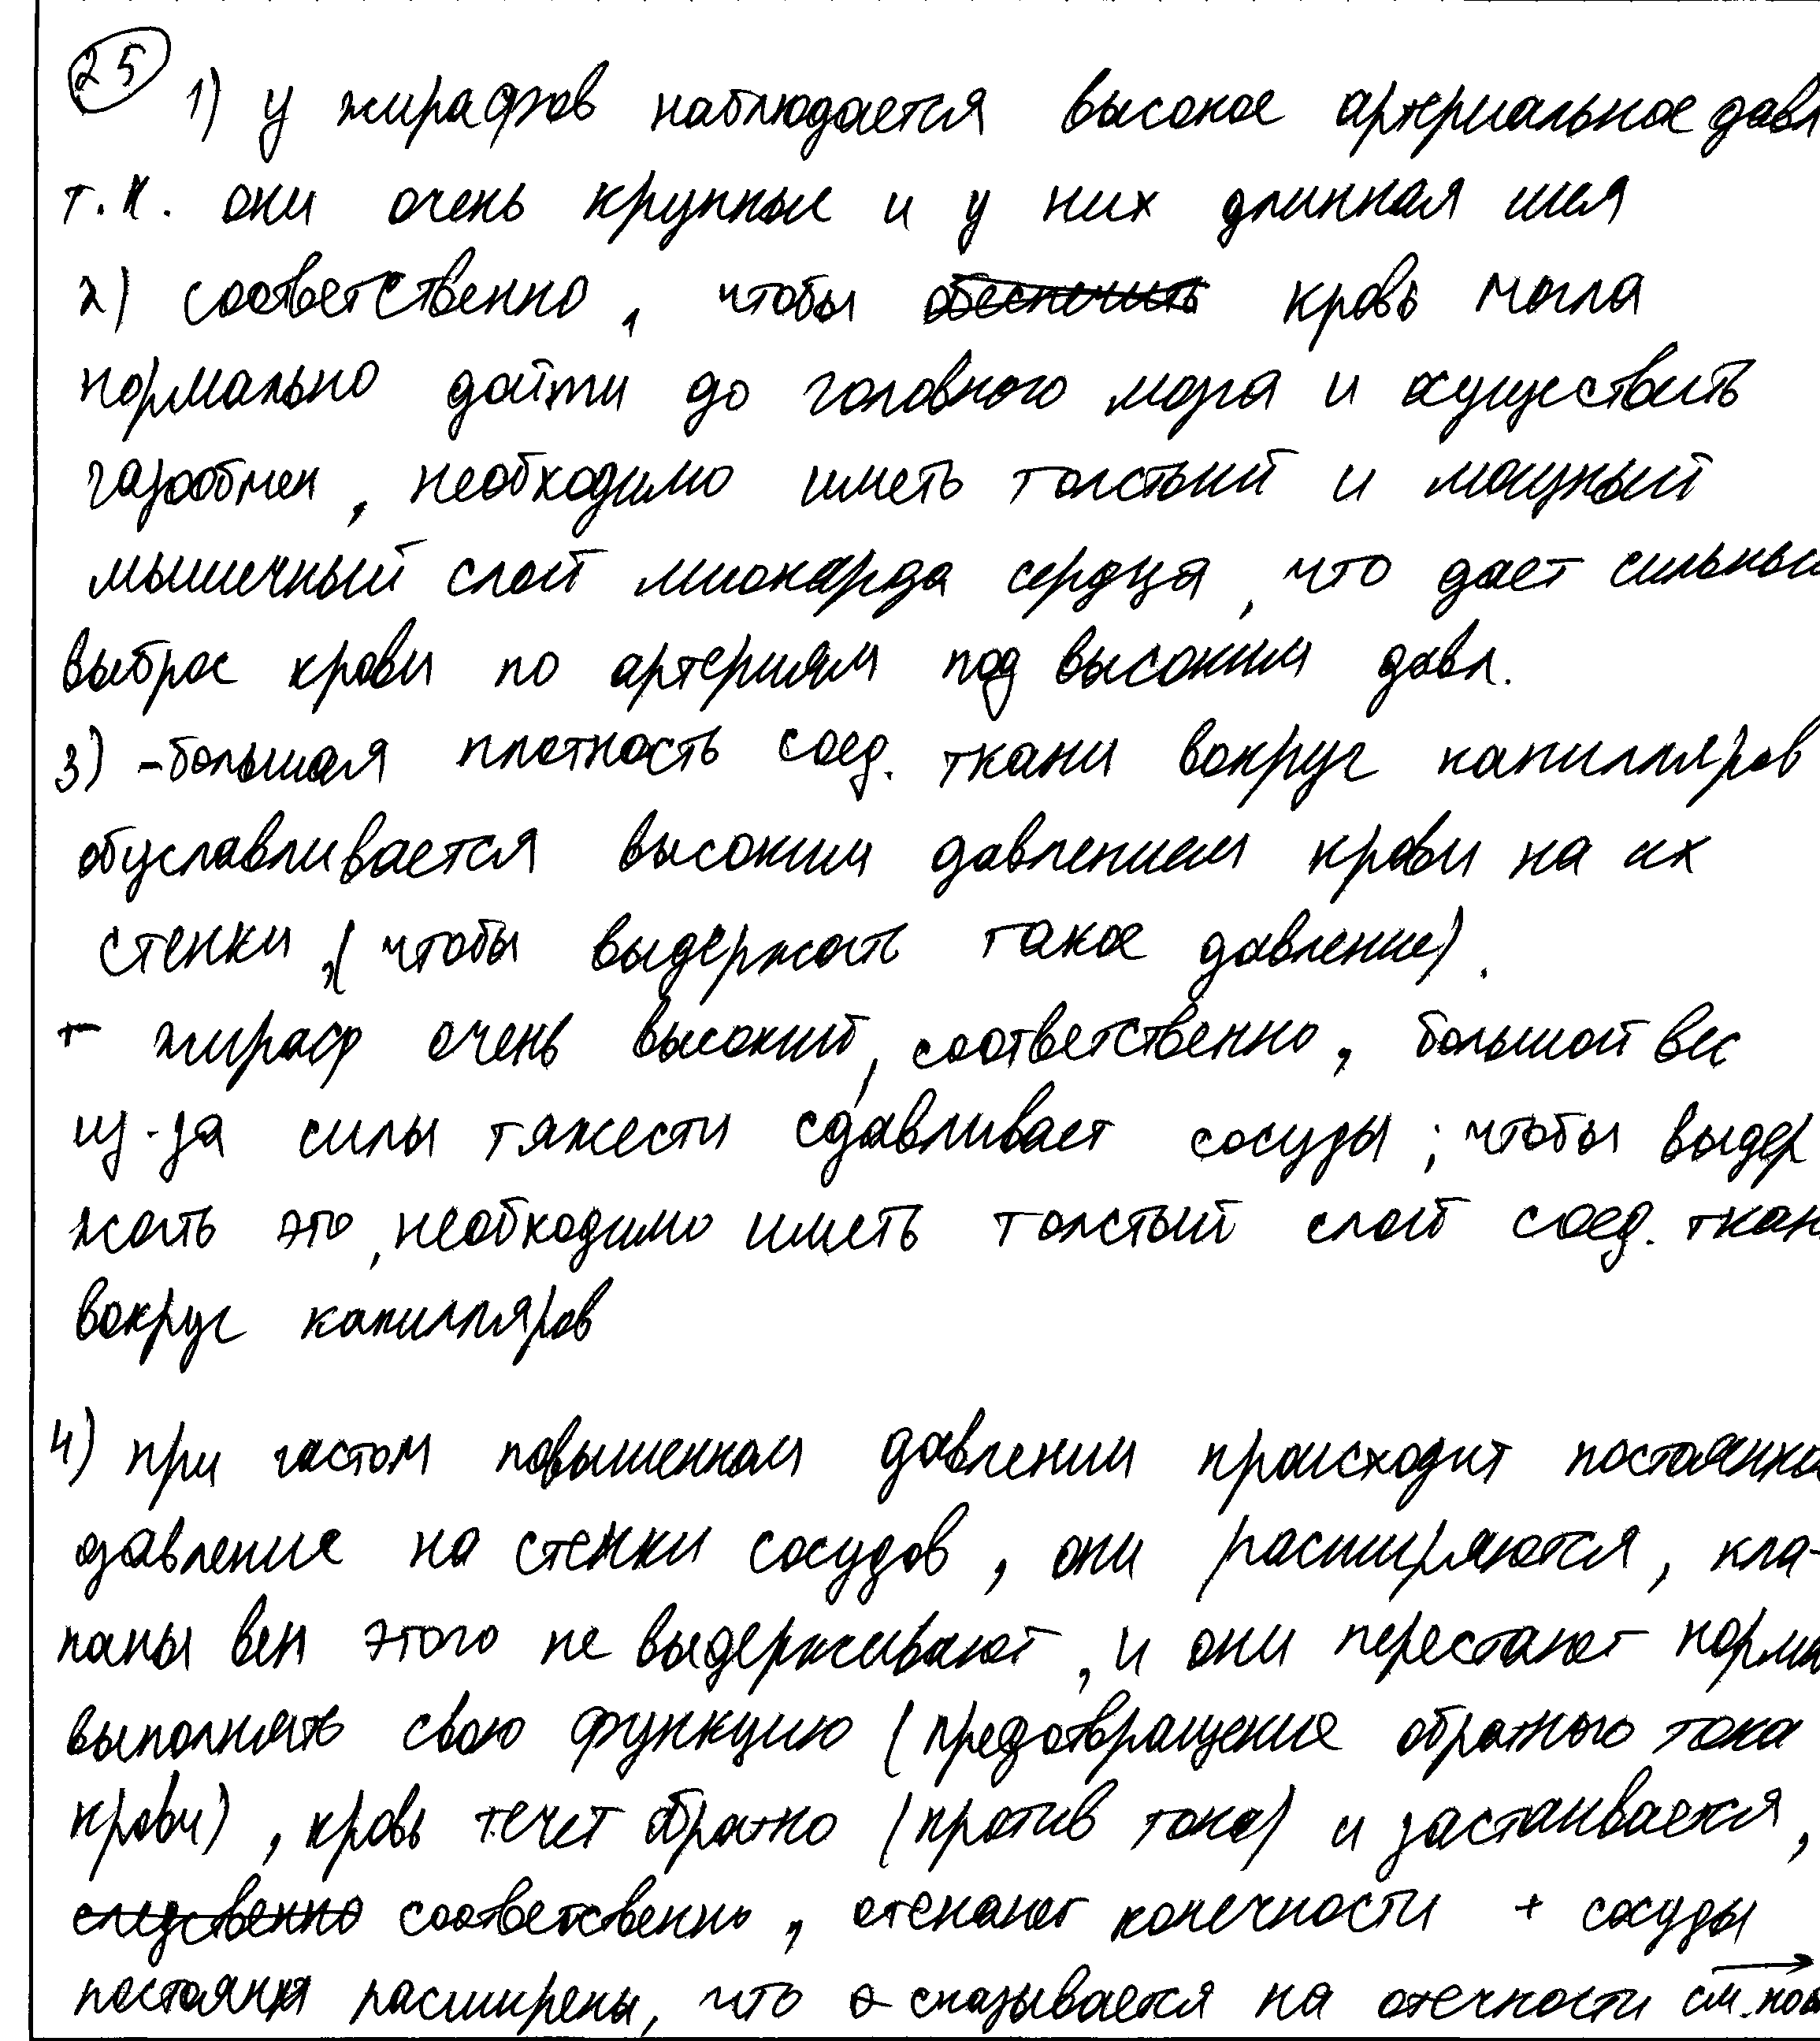 25 1) у жирафов наблюдается высокое артериальное давл
т.к. они очень крупные и у них длинная шея
2) соответственно, чтобы обеспечить кровь могла
нормально дойти до головного мозга и осуществить
газообмен, необходимо иметь толстый и мощный
мышечный слой миокарда сердца, что дает сильный
выброс крови по артериям под высоким давл.
3) -большая плотность соед. ткани вокруг капилляров
обуславливается высоким давлением крови на их
стенки, (чтобы выдержать такое давление).
- жираф очень высокий, соответственно, большой вес
из-за силы тяжести сдавливает сосуды; чтобы выдер
жать это, необходимо иметь толстый слой соед. ткан
вокруг капилляров
4) при частом повышенном давлении происходит постоянное
давление на стенки сосудов, они расширяются, кла-
паны вен этого не выдерживают, и они перестают норма
выполнять свою функцию (предотвращение обратного тока
крови), кровь течет обратно (против тока) и застаивается,
следственно соответственно, отекают конечности + сосуды
постоянно расширены, что сказывается на отечности см. нов